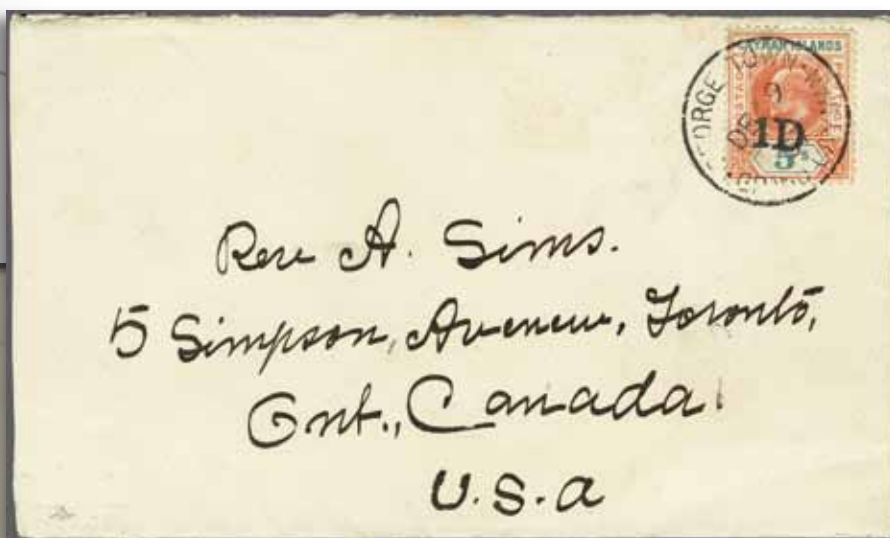 CAYMAN ISLANDS
GEORGE TOWN
9
DE
1D
5s
Rev A. Sims.
5 Simpson, Avenew, Toronto,
Ont., Canada.
U.S.a